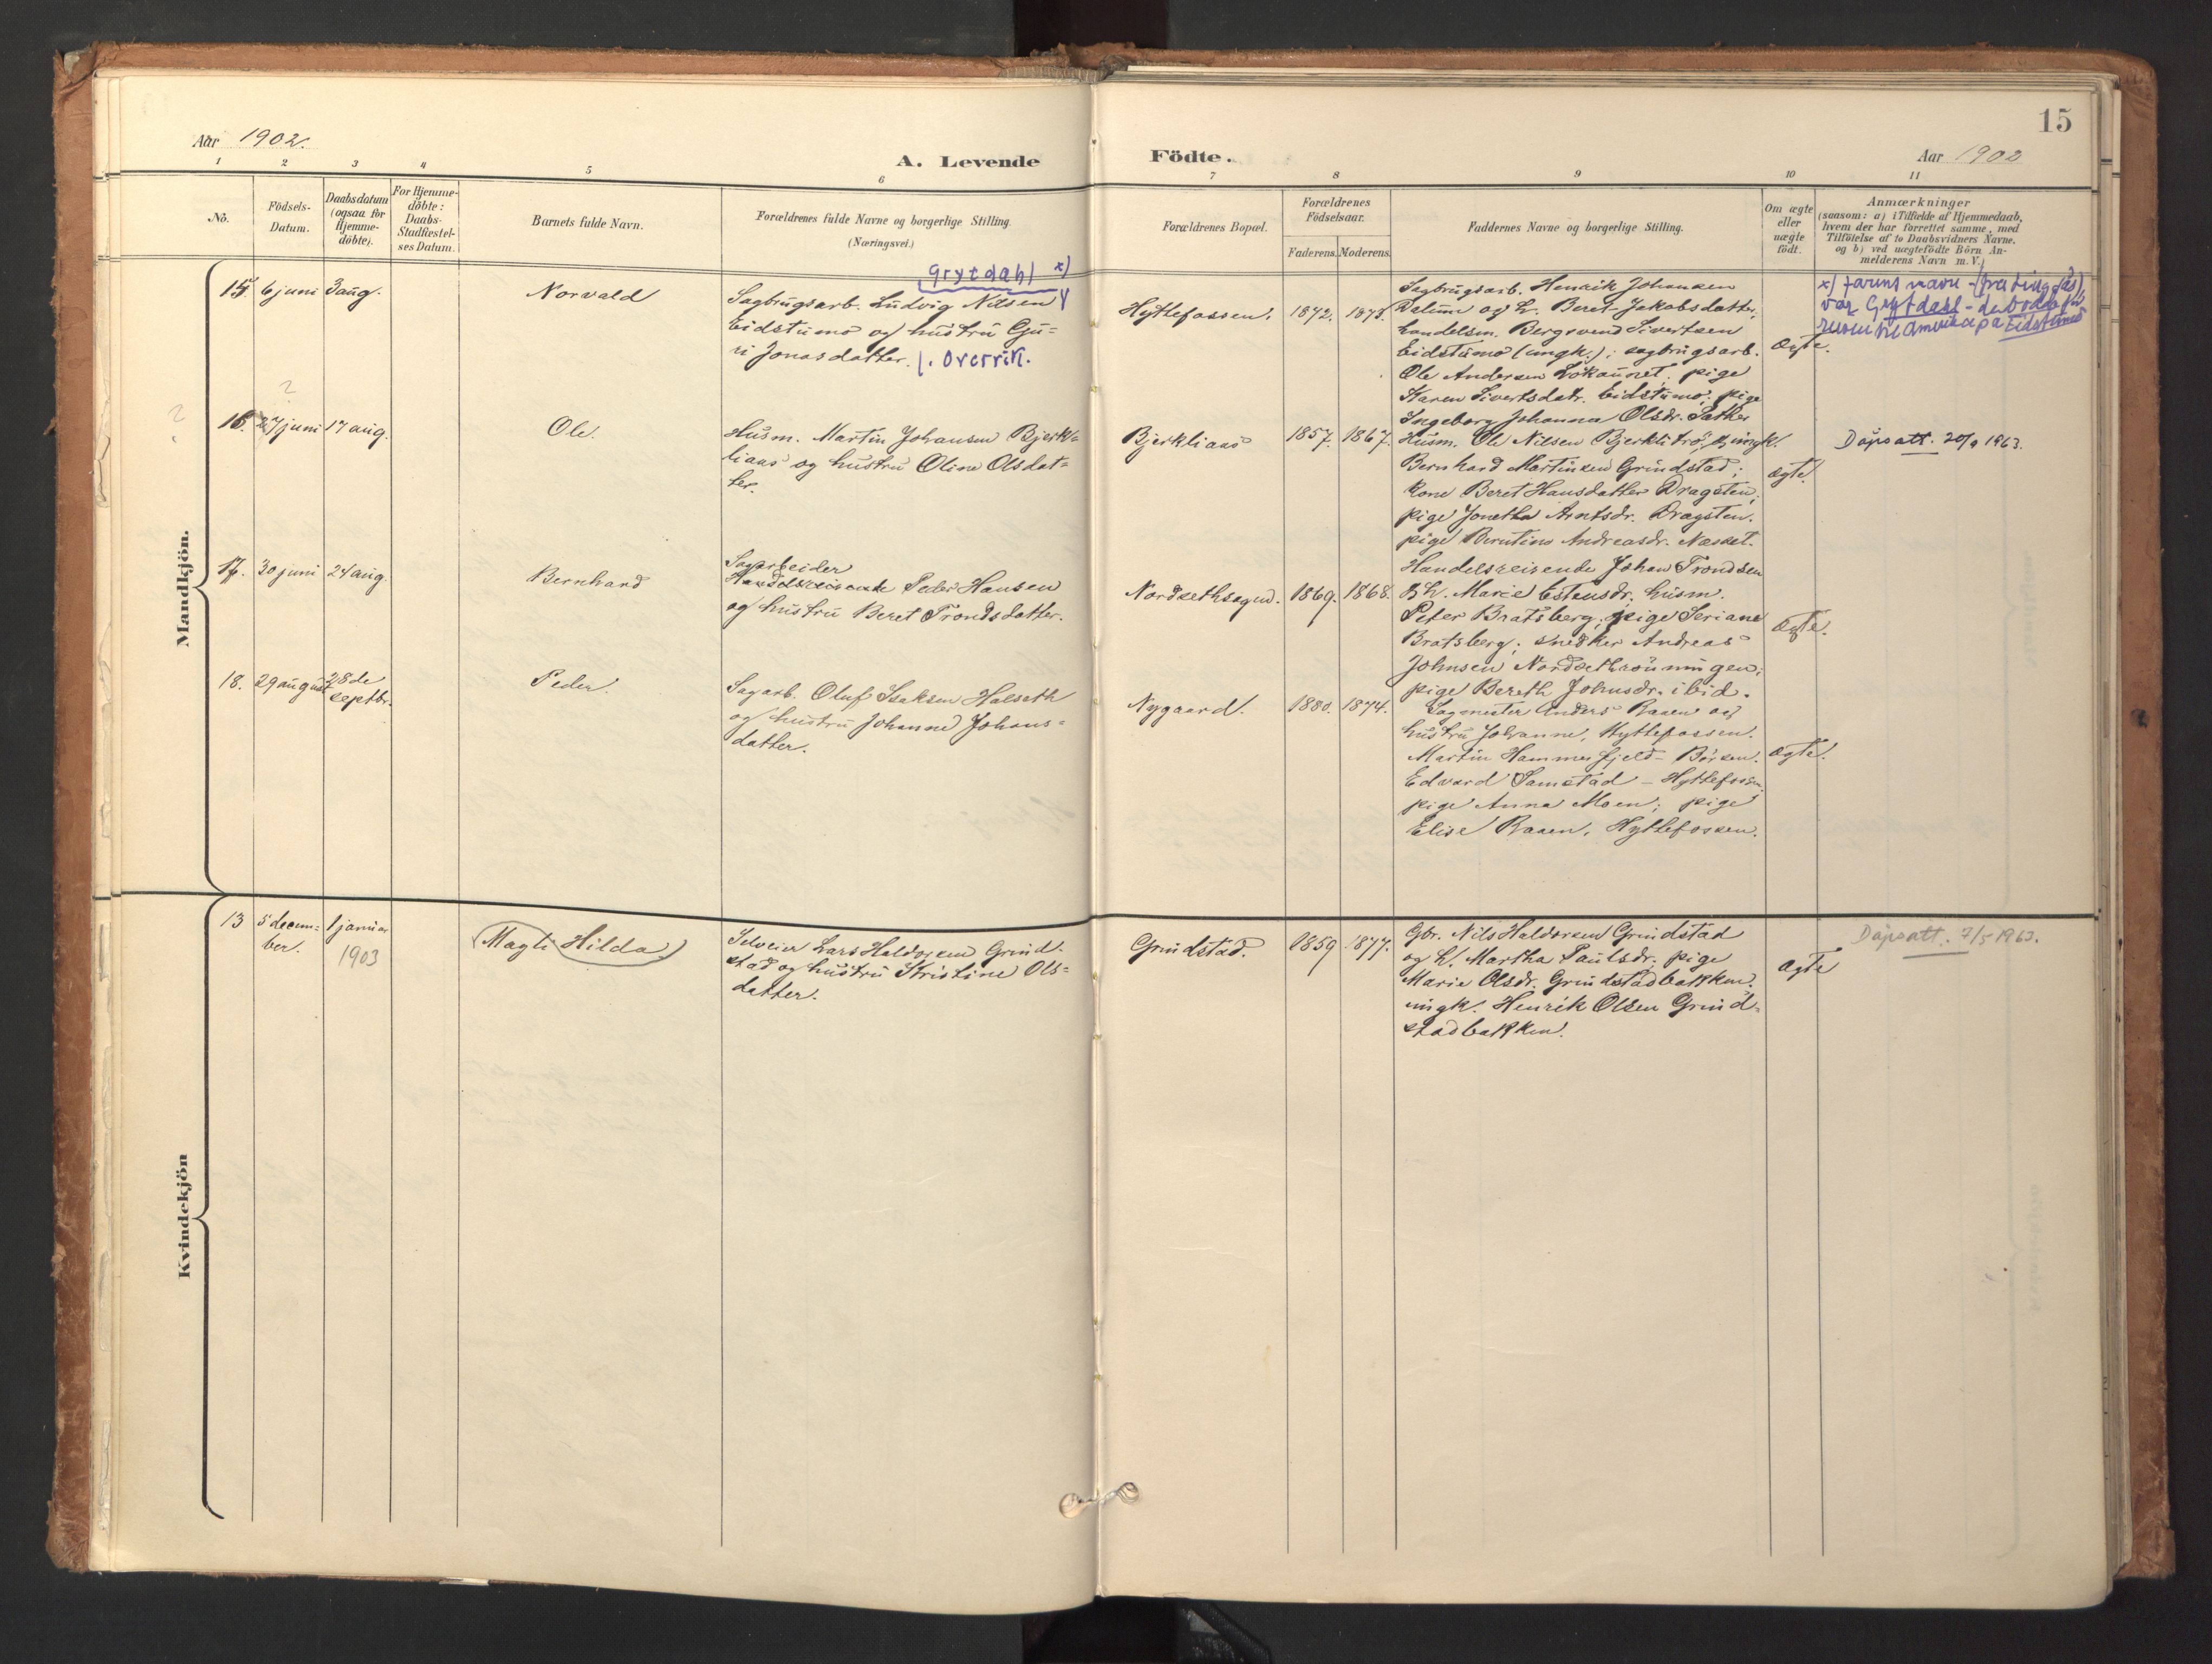 15
Aar 1902.
A. Levende
Födte.
Aar 1902
1 2 3 4 5 6 7 8 9 10 11
No.
Födsels-
Datum.
Daabsdatum
(ogsaa for
Hjemme-
döbte).
For Hjemme-
döbte:
Daabs-
Stadfestel-
ses Datum.
Barnets fulde Navn.
Forældrenes fulde Navne og borgerlige Stilling.
(Næringsvei.)
Forældrenes Bopæl.
Forældrenes
Födselsaar.
Faderens. Moderens.
Faddernes Navne og borgerlige Stilling.
Om ægte
eller
uægte
födt.
Anmærkninger
(saasom: a) i Tilfælde af Hjemmedaab,
hvem der har forrettet samme, med
Tilföielse af to Daabsvidners Navne,
og b) ved uægtefödte Börn An-
melderens Navn m. V.)
Mandkjön.
15. 6 juni 3 aug.
Norvald
Grytdahl x)
Sagbrugsarb. Ludvig Nilsen
Eidstumo og hustru Gu-
ri Jonasdatter. f. Overvik.
Hyttefossen. 1872. 1873.
Sagbrugsarb. Henrik Johansen
Dalum og h. Beret Jakobsdatter,
handelsm. Bergsvend Sivertsen
Eidstumo (ungk.); sagbrugsarb.
Ole Andersen Løkaunet; pige
Karen Sivertsdatr. Eidstumo; pige
Ingeborg Johanna Olsdr. Sæther
ægte.
x) farens navn
var Grytdahl - de
til Amerika på Eidstumo
?
?
16. 27 juni 17 aug.
Ole.
Husm. Martin Johansen Bjerk-
liaas og hustru Oline Olsdat=
ter.
Bjerkliaas 1857. 1867.
Husm. Ole Nilsen Bjerklitrø, ungk.
Bernhard Martinsen Grindstad;
kone Beret Hansdatter Dragsten;
pige Jonetha Arntsdr. Dragsten.
pige Berntine Andreasdr. Næsset.
ægte.
Dåpsatt. 20/9 1963.
17. 30 juni 24 aug.
Bernhard
Sagarbeider
Handelsreisende Peder Hansen
og hustru Beret Trondsdatter.
Nordsethsagen. 1869. 1868.
Handelsreisende Johan Trondsen
h. Marie Estensdr. husm.
Peter Bratsberg; pige Seriane
Bratsberg; snedker Andreas
Johnsen Nordsethrønningen;
pige Bereth Johnsdr. ibid.
ægte.
18. 29 august 28de
septbr.
Peder.
Sagarb. Oluf Isaksen Halseth
og hustru Johanne Johans=
datter.
Nygaard. 1880. 1874.
Sagmester Anders Raaen og
hustru Johanne, Hyttefossen.
Martin Hammerfjeld - Børsen.
Edvard Samstad - Hyttefossen,
pige Anna Moen; pige
Elise Raaen, Hyttefossen.
ægte.
Kvindekjön
13 5 decem=
ber. 1 januar
1903
Magli Hilda
Selveier Lars Haldorsen Grind-
stad og hustru Kristine Ols=
datter.
Grindstad. 1859 1877.
Gbr. Nils Haldorsen Grindstad
og h. Martha Paulsdr. pige
Marie Olsdr. Grindstadbakken.
ungk. Henrik Olsen Grind-
stadbakken.
ægte
Dåpsatt. 7/5 1963.